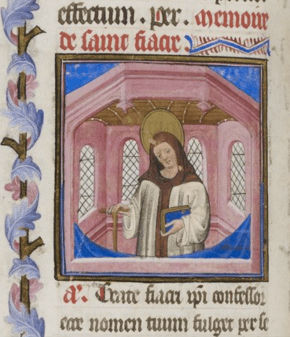 effectum. per. Memoire
de saint fiacre
A. Beate fiacri xpi confessor
ecce nomen tuum fulget per se